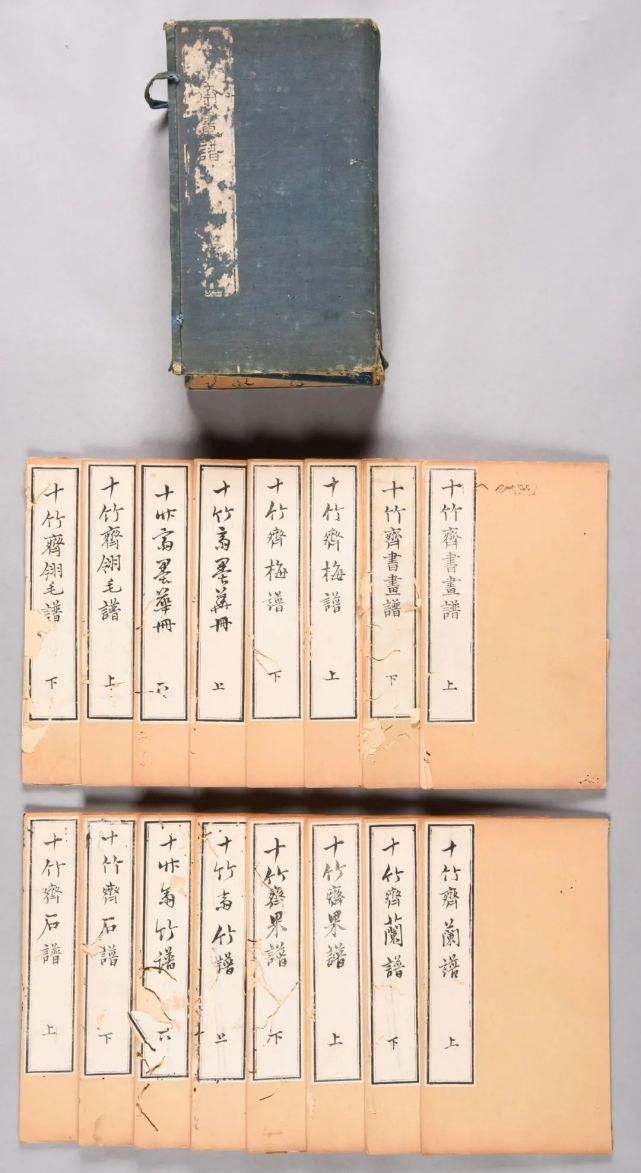 畫譜
十竹齋書畫譜 上
十竹齋書畫譜 下
十竹齋梅譜 上
十竹齋梅譜 下
十竹齋墨華冊 上
十竹齋墨華冊 下
十竹齋翎毛譜 上
十竹齋翎毛譜 下
十竹齋蘭譜 上
十竹齋蘭譜 下
十竹齋果譜 上
十竹齋果譜 下
十竹齋竹譜 上
十竹齋竹譜 下
十竹齋石譜 下
十竹齋石譜 上